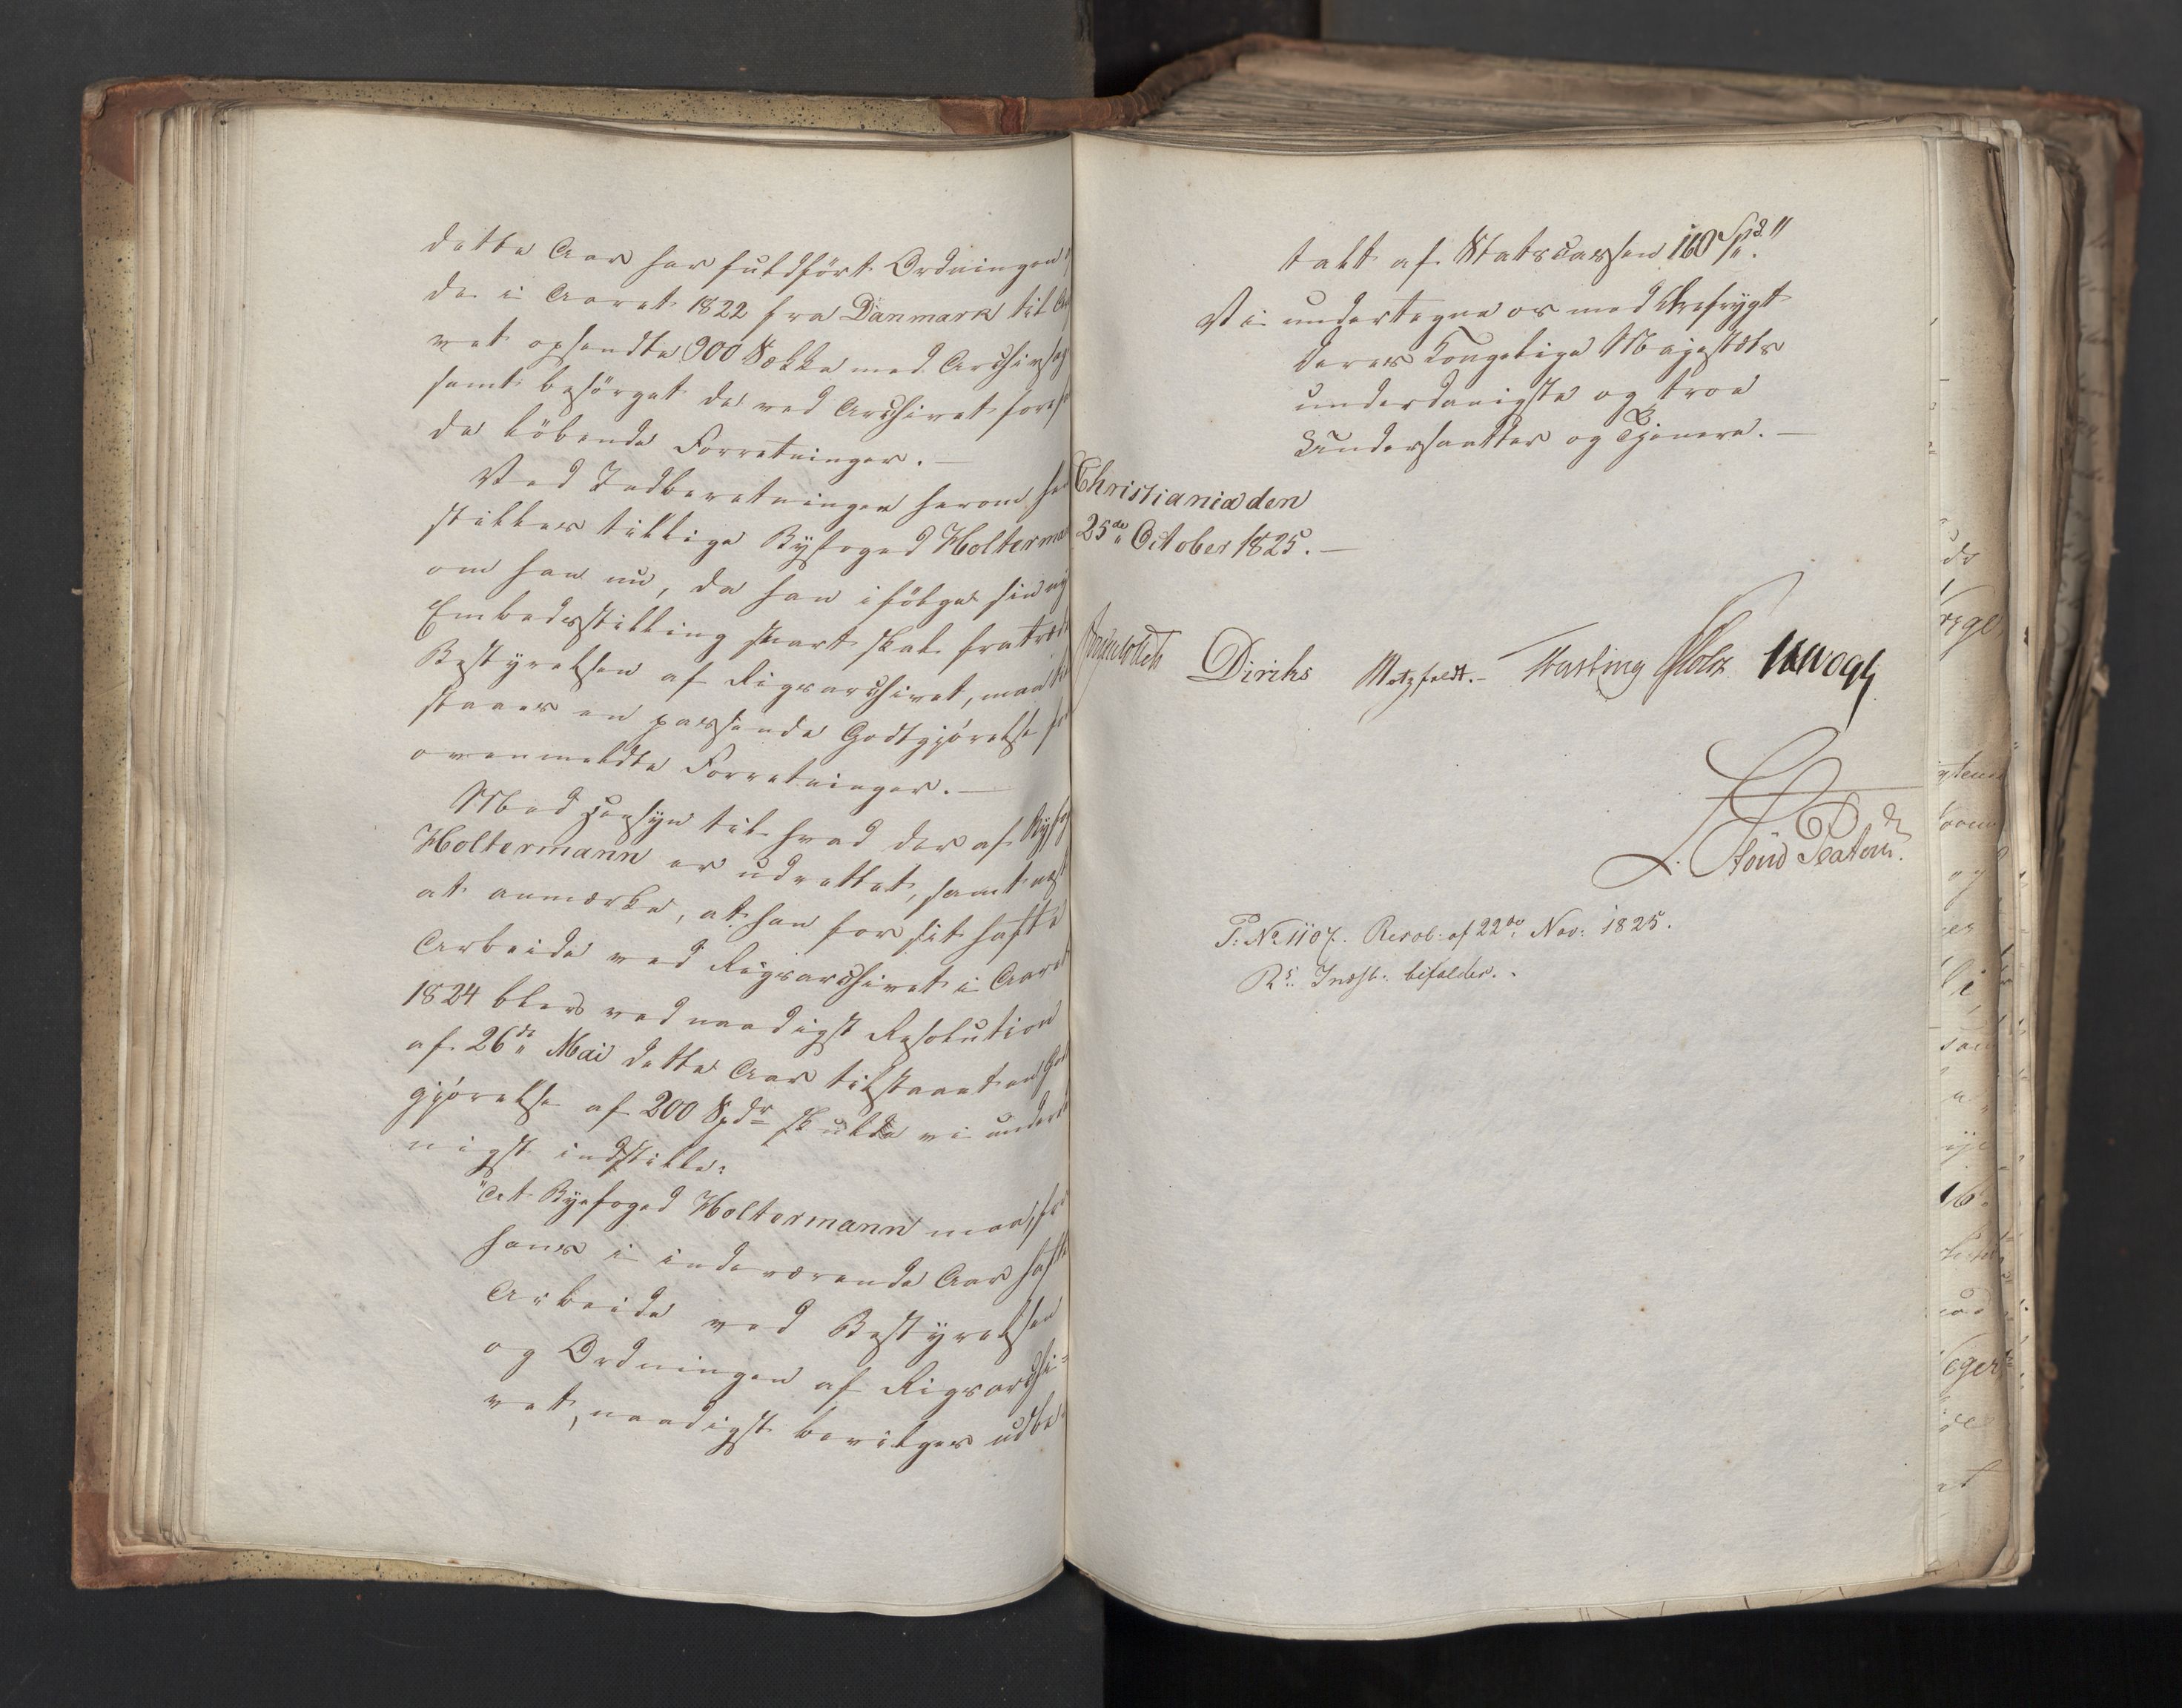 dette Aar har fuldført Ordningen
de i Aaret 1822 fra Danmark til
vet opsendte 900 Pakke med
samt besørget de ved Archivet
de løbende Forretninger. —
Ved Indberetningen herom
stilles tillige Byfoged Holterma
om han nu, da han ifølge sin
Embedsstilling snart skal fratræde
Bestyrelsen af Rigsarchivet, maa
staaes en passende Godtgjørelse
ovenmeldte Forretninger. —
Med Hensyn til hvad der af Byfog
Holtermann er udrettet, samt
at anmærke, at han for sit hafte
Arbeide ved Rigsarchivet i Aaret
1824 blev ved naadigst Resolution
af 26de Mai dette Aar tilstaaet en God
gjørelse af 200 Spdr skulde vi underd
nigst indstille:
"At Byefoged Holtermann maa, for
hans i indeværende Aar hafte
Arbeide ved Bestyrelsen
og Ordningen af Rigsarchi=
vet, naadigst bevilges udbe=
talt af Statscassen 160 Spd."
Vi undertegne os med Ærefrygt
Deres Kongelige Majestæts
underdanigste og troe
Undersaatter og Tjenere. —
Christiania den
25de October 1825. —
Diriks Motzfeldt. — Fasting JHVogt
P: No 1107. Resol: af 22de Nov: 1825.
Rs. Indst: bifaldes.